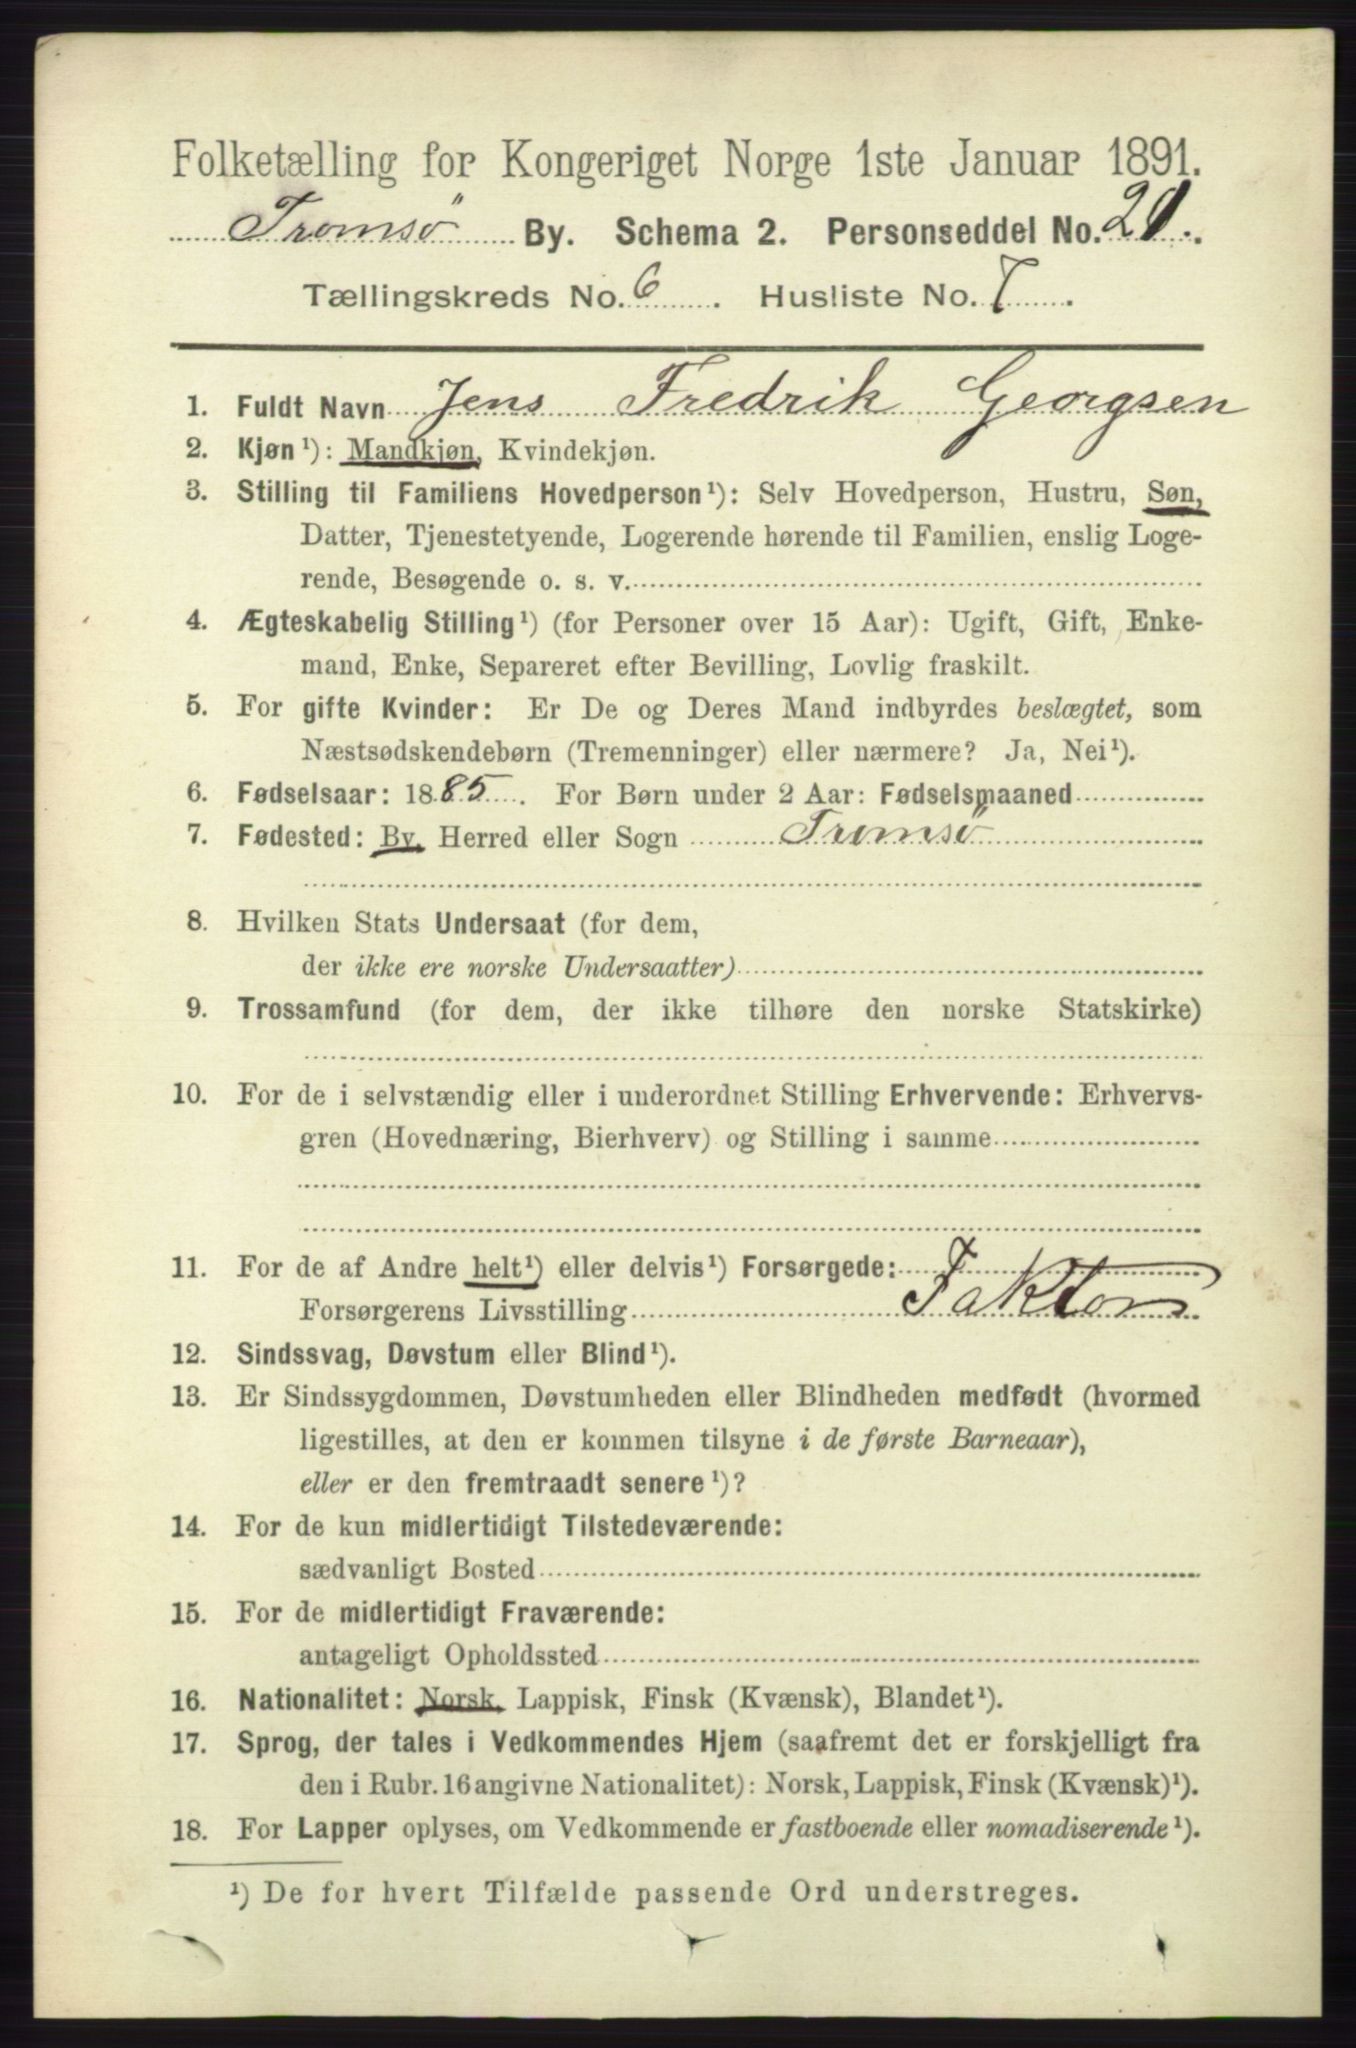 Folketælling for Kongeriget Norge 1ste Januar 1891.
Tromsö By. Schema 2. Personseddel No. 21.
Tællingskreds No. 6. Husliste No. 7.
1. Fuldt Navn Jens Fredrik Georgsen
2. Kjøn¹): Mandkjøn, Kvindekjøn.
3. Stilling til Familiens Hovedperson¹): Selv Hovedperson, Hustru, Søn,
Datter, Tjenestetyende, Logerende hørende til Familien, enslig Loge-
rende, Besøgende o. s. v.
4. Ægteskabelig Stilling¹) (for Personer over 15 Aar): Ugift, Gift, Enke-
mand, Enke, Separeret efter Bevilling, Lovlig fraskilt.
5. For gifte Kvinder: Er De og Deres Mand indbyrdes beslægtet, som
Næstsødskendebørn (Tremenninger) eller nærmere? Ja, Nei¹).
6. Fødselsaar: 1885. For Børn under 2 Aar: Fødselsmaaned
7. Fødested: By, Herred eller Sogn Tromsö
8. Hvilken Stats Undersaat (for dem,
der ikke ere norske Undersaatter)
9. Trossamfund (for dem, der ikke tilhøre den norske Statskirke)
10. For de i selvstændig eller i underordnet Stilling Erhvervende: Erhvervs-
gren (Hovednæring, Bierhverv) og Stilling i samme
11. For de af Andre helt¹) eller delvis¹) Forsørgede:
Forsørgerens Livsstilling Faktors
12. Sindssvag, Døvstum eller Blind¹).
13. Er Sindssygdommen, Døvstumheden eller Blindheden medfødt (hvormed
ligestilles, at den er kommen tilsyne i de første Barneaar),
eller er den fremtraadt senere¹)?
14. For de kun midlertidigt Tilstedeværende:
sædvanligt Bosted
15. For de midlertidigt Fraværende:
antageligt Opholdssted
16. Nationalitet: Norsk, Lappisk, Finsk (Kvænsk), Blandet¹).
17. Sprog, der tales i Vedkommendes Hjem (saafremt det er forskjelligt fra
den i Rubr. 16 angivne Nationalitet): Norsk, Lappisk, Finsk (Kvænsk)¹).
18. For Lapper oplyses, om Vedkommende er fastboende eller nomadiserende¹).
¹) De for hvert Tilfælde passende Ord understreges.